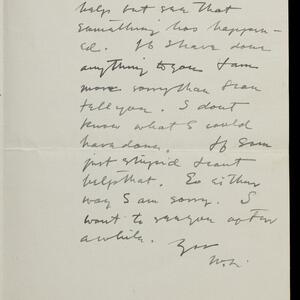 help but see that
something has happen-
ed. If I have done
anything to you I am
more sorry than I can
tell you. I dont
know what I could
have done. If I am
just stupid I cant
help that. So either
way I am sorry. I
want to see you after
awhile.